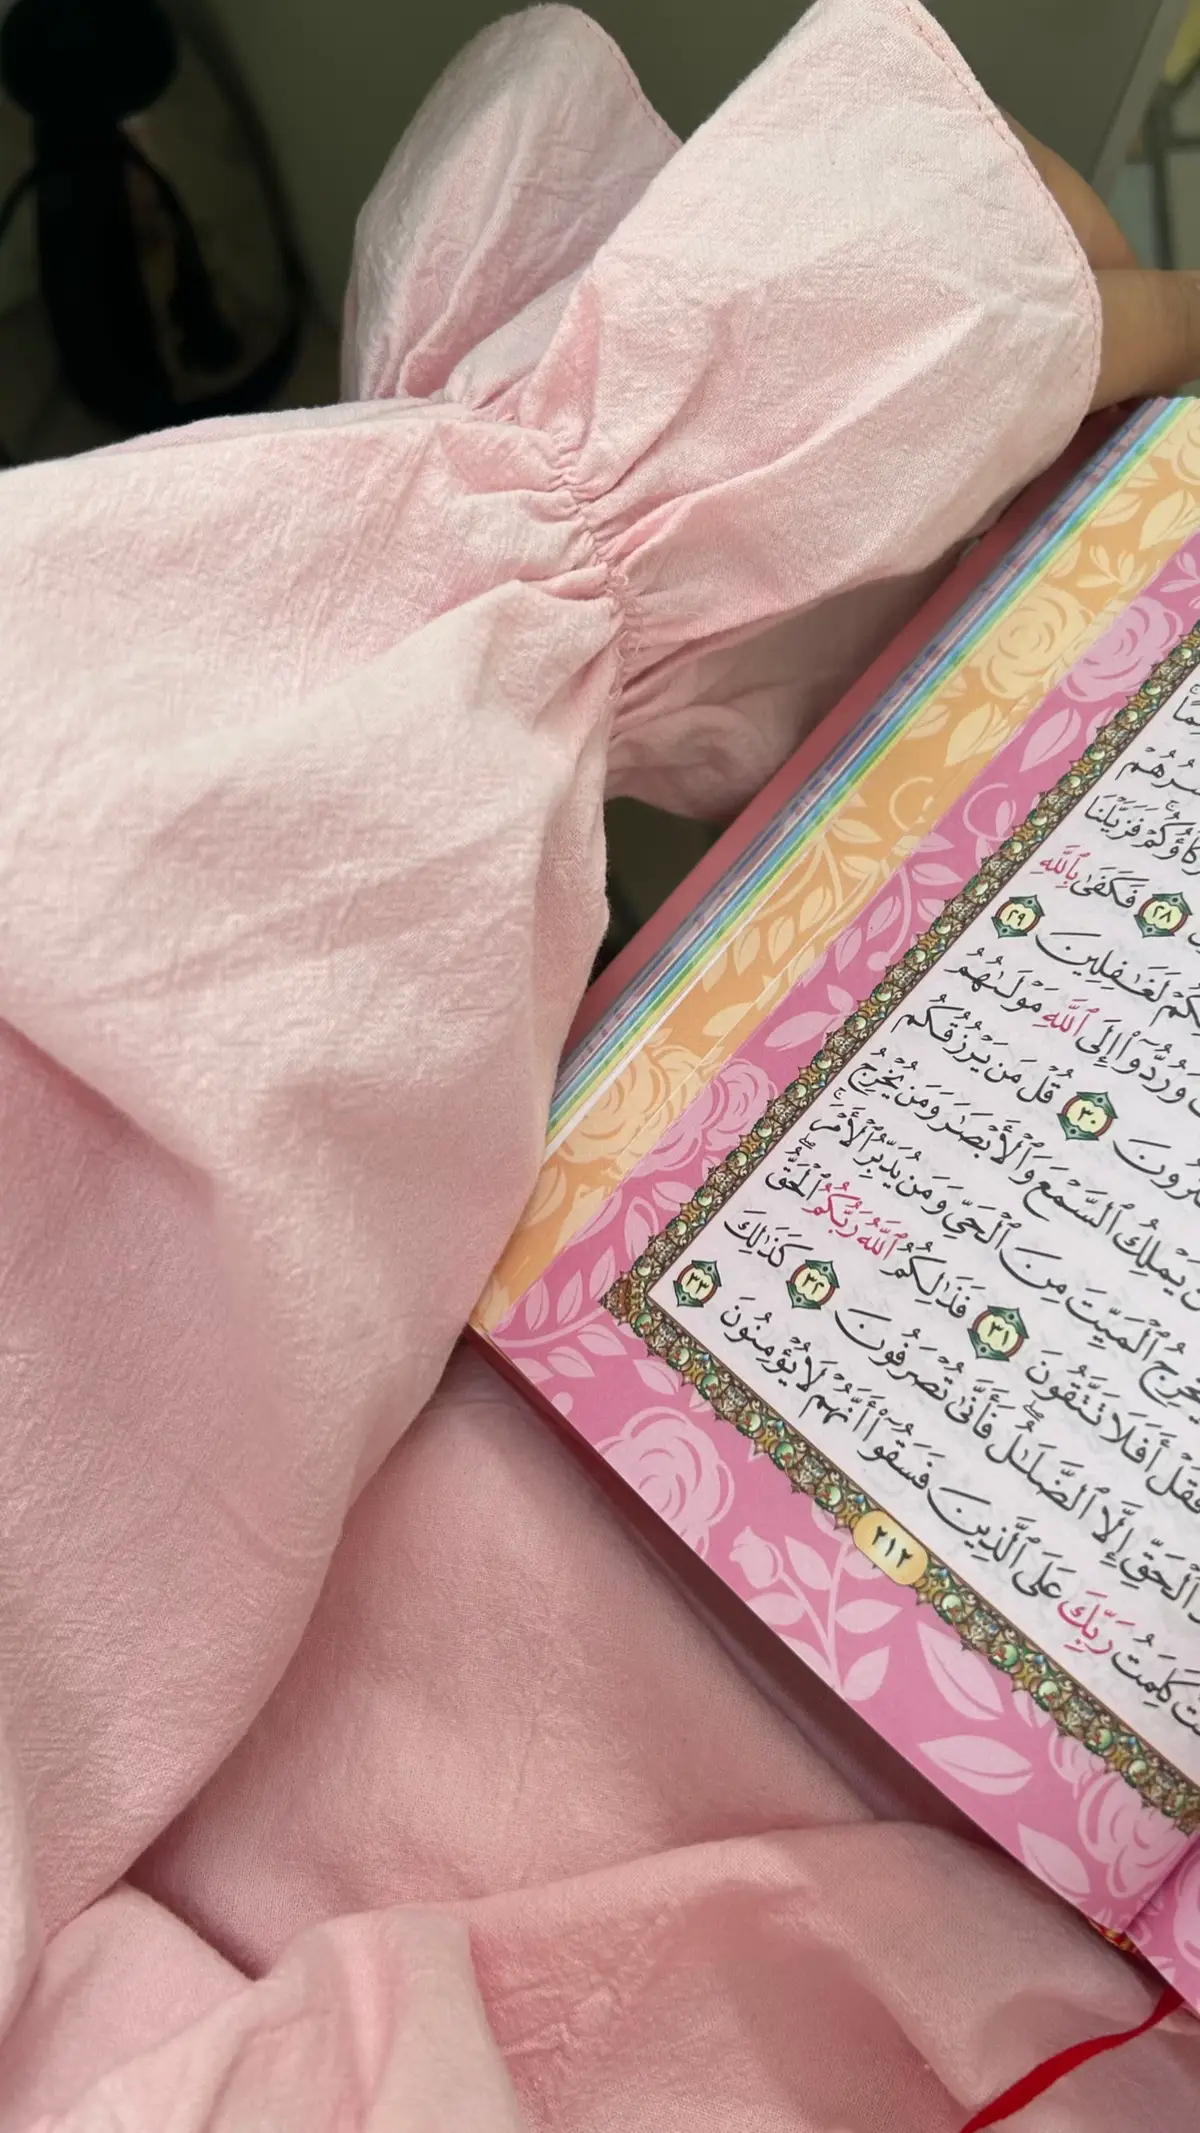 فَزَيَّلْنَا
٢٨ فَكَفَىٰ بِٱللَّهِ
لَغَـٰفِلِينَ ٢٩
وَرُدُّوٓا۟ إِلَى ٱللَّهِ مَوْلَىٰهُمُ
٣٠ قُلْ مَن يَرْزُقُكُم
يَمْلِكُ ٱلسَّمْعَ وَٱلْأَبْصَـٰرَ وَمَن يُخْرِجُ
ٱلْمَيِّتَ مِنَ ٱلْحَىِّ وَمَن يُدَبِّرُ ٱلْأَمْرَ ۚ
فَقُلْ أَفَلَا تَتَّقُونَ ٣١ فَذَٰلِكُمُ ٱللَّهُ رَبُّكُمُ ٱلْحَقُّ
ٱلْحَقِّ إِلَّا ٱلضَّلَـٰلُ ۖ فَأَنَّىٰ تُصْرَفُونَ ٣٢ كَذَٰلِكَ
كَلِمَتُ رَبِّكَ عَلَى ٱلَّذِينَ فَسَقُوٓا۟ أَنَّهُمْ لَا يُؤْمِنُونَ ٣٣
٢١٢